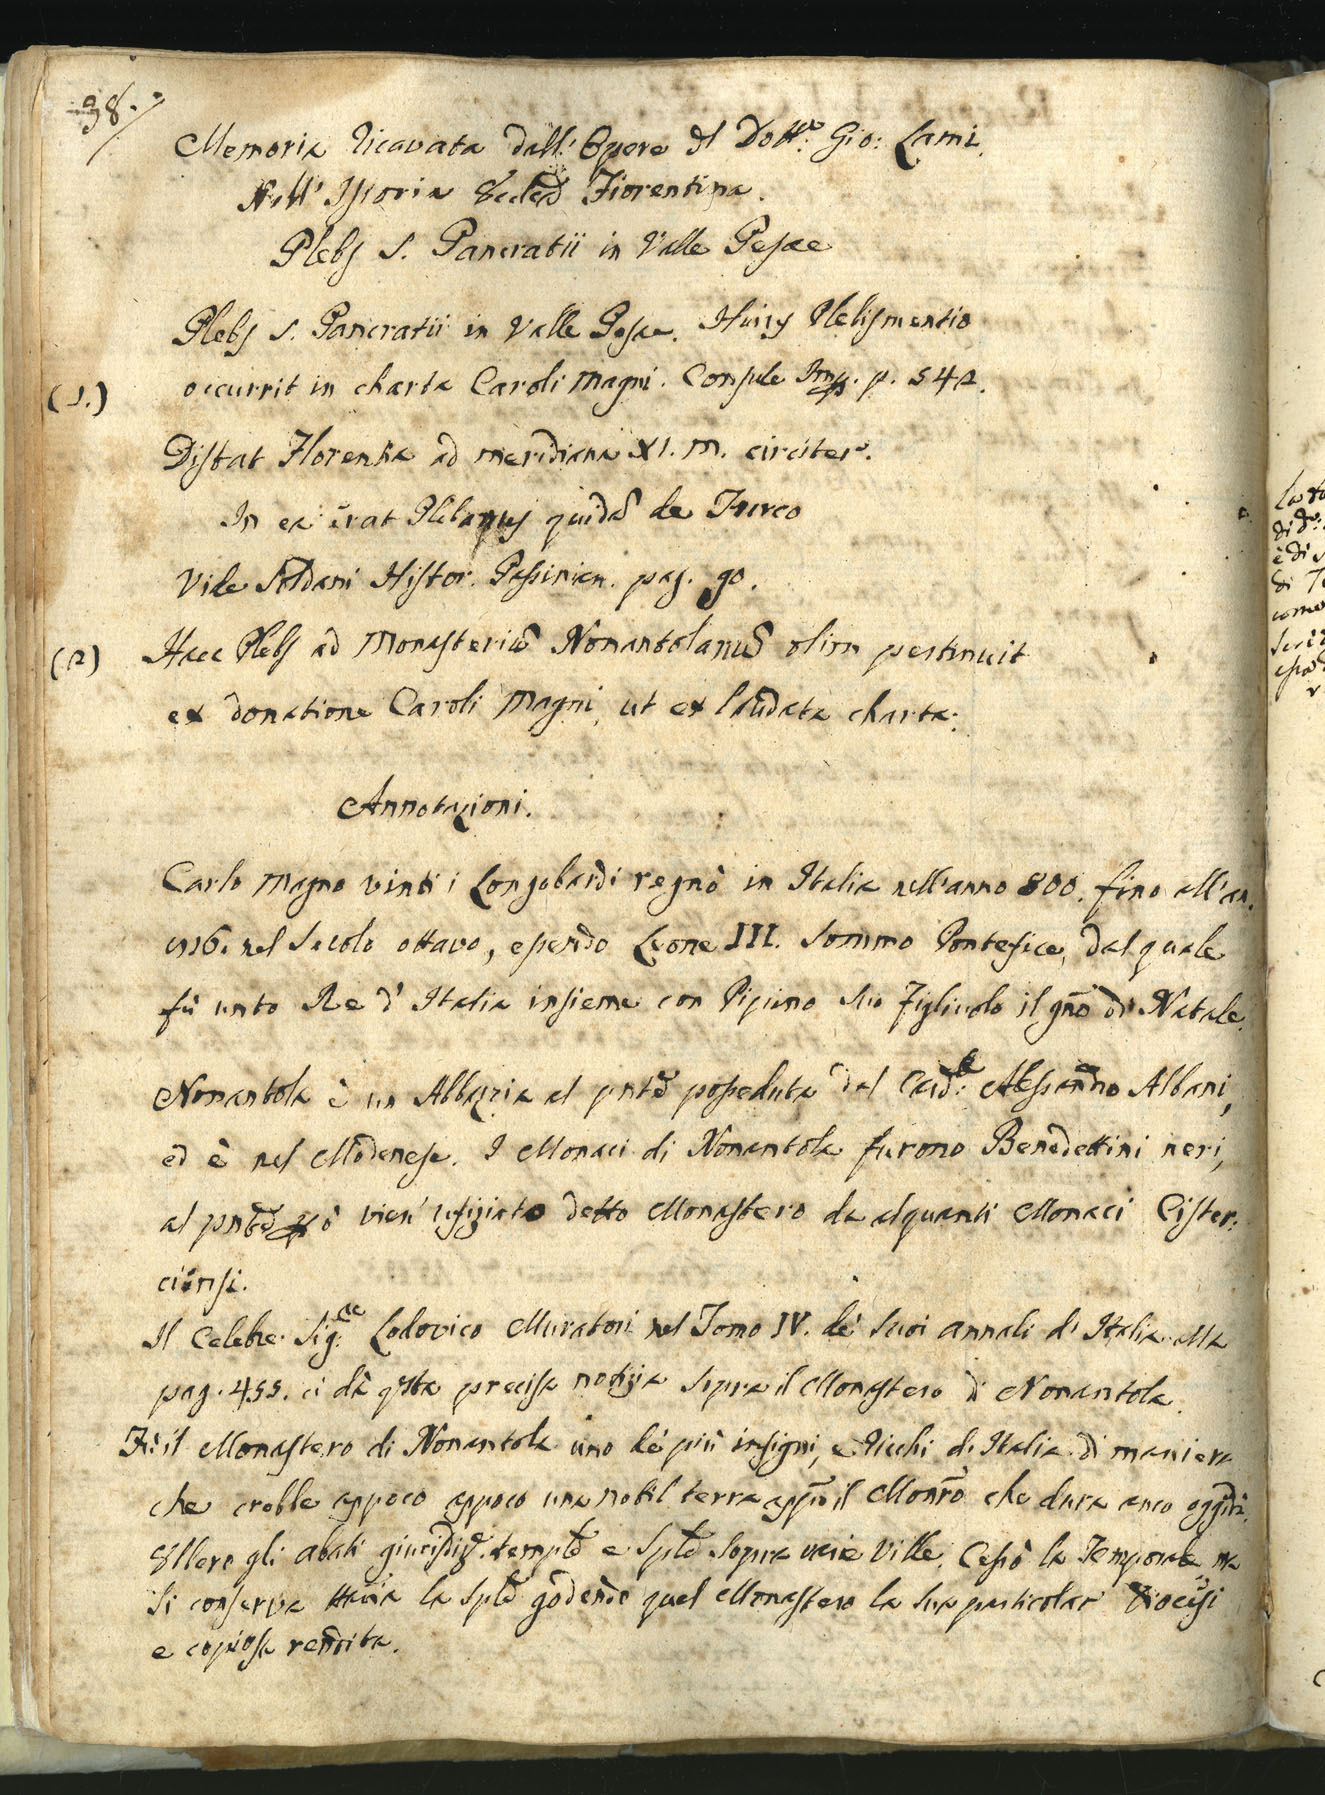 38.
Memoria ricavata dall'Opere del Dott.re Gio: Lami.
Nell'Istoria Eccled Fiorentina.
Plebs S. Pancratii in Valle Pesae
Plebs S. Pancratii in Valle Pesae. Huius Plebis mentio
(1.) occurrit in charta Caroli Magni. Consule p. 542.
Distat Florentia ad meridiana XI. m. circiter.
In ea erat Plebanus quidã de Turco
Vide Soldani Histor. Passinian. pag. 90.
(2) Haec Plebs ad Monasteriũ Nonantolanũ olim pertinuit
ex donatione Caroli Magni, ut ex laudata charta.
Annotazioni.
Carlo Magno vinti i Longobardi regnò in Italia nell'anno 800. fino all'an.
nel Secolo ottavo, essendo Leone III. Sommo Pontefice, dal quale
fù unto Re d'Italia insieme con Pipino suo Figliuolo il gno di Natale.
Nonantola è un Abbazia al pnte posseduta dal Card.le Alessandro Albani,
ed è nel Modenese. I Monaci di Nonantola furono Benedettini neri,
al pnte pò vien' ufiziato detto Monastero da alquanti Monaci Cister:
ciensi.
Il Celebre Sig.re Lodovico Muratori nel Tomo IV. de' suoi annali d'Italia alla
pag. 455. ci dà qsta precisa notizia sopra il Monastero di Nonantola.
Fù il Monastero di Nonantola uno de' più insigni, e ricchi d'Italia di maniera
che crebbe appoco appoco una nobil terra appõ il Monrõ che dura anco oggidì.
Ebbero gli abati giurisdiz. temple e sple sopra varie Ville. Cessò la Temporale ma
si conserva tttavia la sple godendo quel Monastero la sua particolar Diocesi
e copiosa rendita.